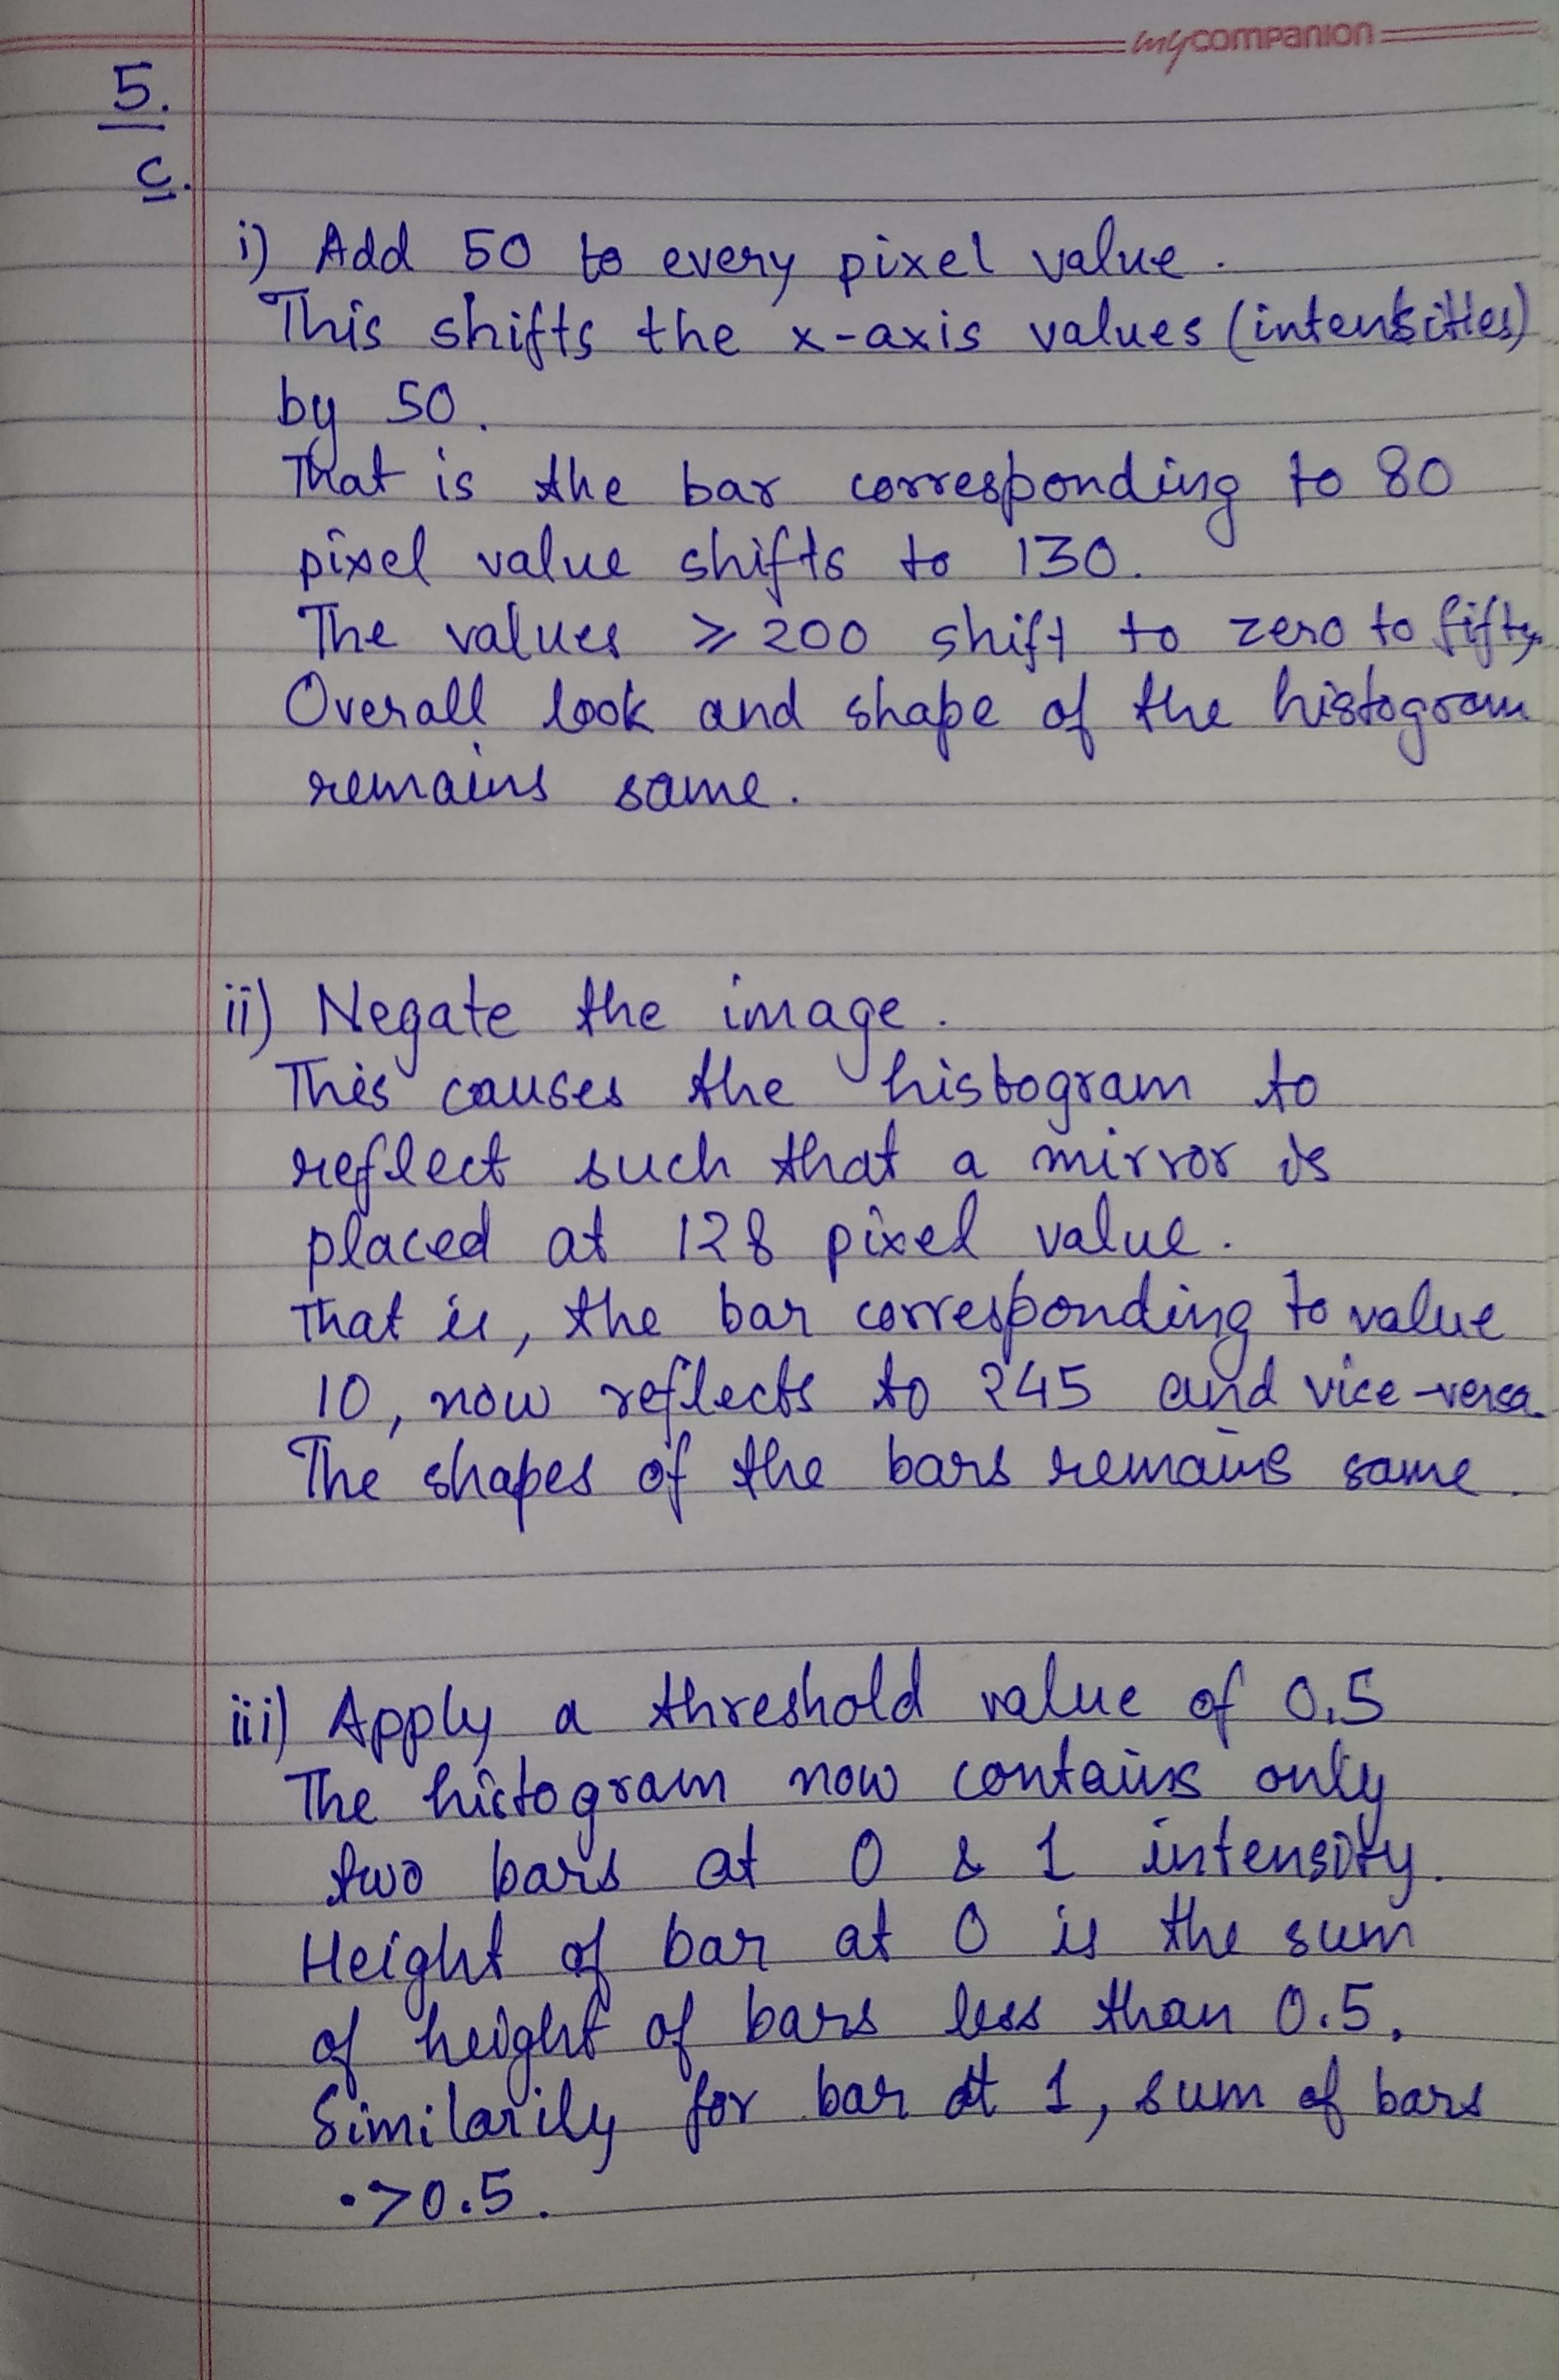 mycompanion
5.
c.
i) Add 50 to every pixel value.
This shifts the x-axis values (intensities)
by 50.
That is the bar corresponding to 80
pixel value shifts to 130.
The values ⩾ 200 shift to zero to fifty.
Overall look and shape of the histogram
remains same.
ii) Negate the image.
This causes the histogram to
reflect such that a mirror is
placed at 128 pixel value.
That is, the bar corresponding to value
10, now reflects to 245 and vice-versa.
The shapes of the bars remains same.
iii) Apply a threshold value of 0.5
The histogram now contains only
two bars at 0 & 1 intensity.
Height of bar at 0 is the sum
of height of bars less than 0.5.
Similarily for bar at 1, sum of bars
>0.5.